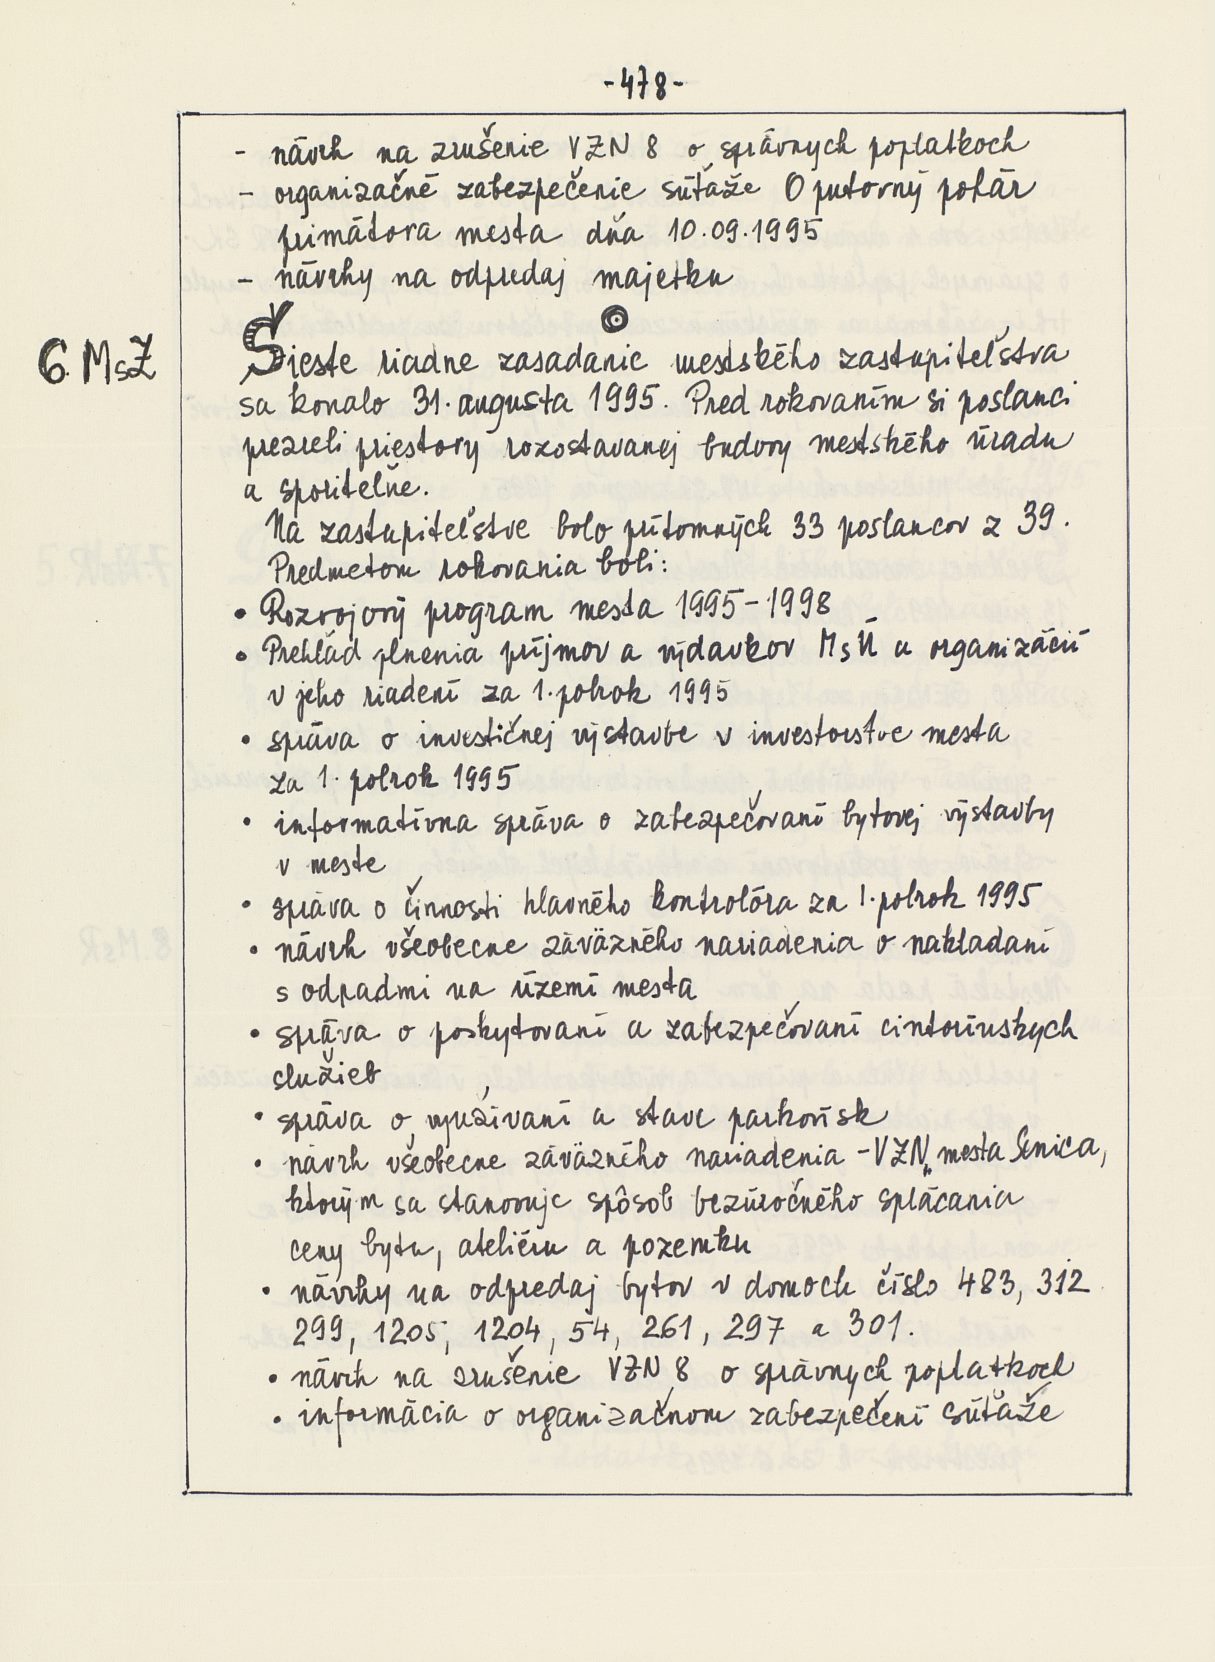 -478-
- návrh na zrušenie VZN 8 o správnych poplatkoch
- organizačné zabezpečenie súťaže O putovný pohár
primátora mesta dňa 10.09.1995
- návrhy na odpredaj majetku
6. MsZ
Šieste riadne zasadanie mestského zastupiteľstva
sa konalo 31. augusta 1995. Pred rokovaním si poslanci
prezreli priestory rozostavanej budovy mestského úradu
a sporiteľne.
Na zastupiteľstve bolo prítomných 33 poslancov z 39.
Predmetom rokovania boli:
• Rozvojový program mesta 1995-1998
• Prehľad plnenia príjmov a výdavkov MsÚ a organizácií
v jeho riadení za 1. polrok 1995
• správa o investičnej výstavbe v investorstve mesta
za 1. polrok 1995
• informatívna správa o zabezpečovaní bytovej výstavby
v meste
• správa o činnosti hlavného kontrolóra za 1. polrok 1995
• návrh všeobecne záväzného nariadenia o nakladaní
s odpadmi na území mesta
• správa o poskytovaní a zabezpečovaní cintorínskych
služieb
• správa o využívaní a stave parkovísk
• návrh všeobecne záväzného nariadenia - VZN „mesta Senica,
ktorým sa stanovuje spôsob bezúročného splácania
ceny bytu, ateliéru a pozemku
• návrhy na odpredaj bytov v domoch číslo 483, 312
299, 1205, 1204, 54, 261, 297 a 301.
• návrh na zrušenie VZN 8 o správnych poplatkoch
• informácia o organizačnom zabezpečení súťaže